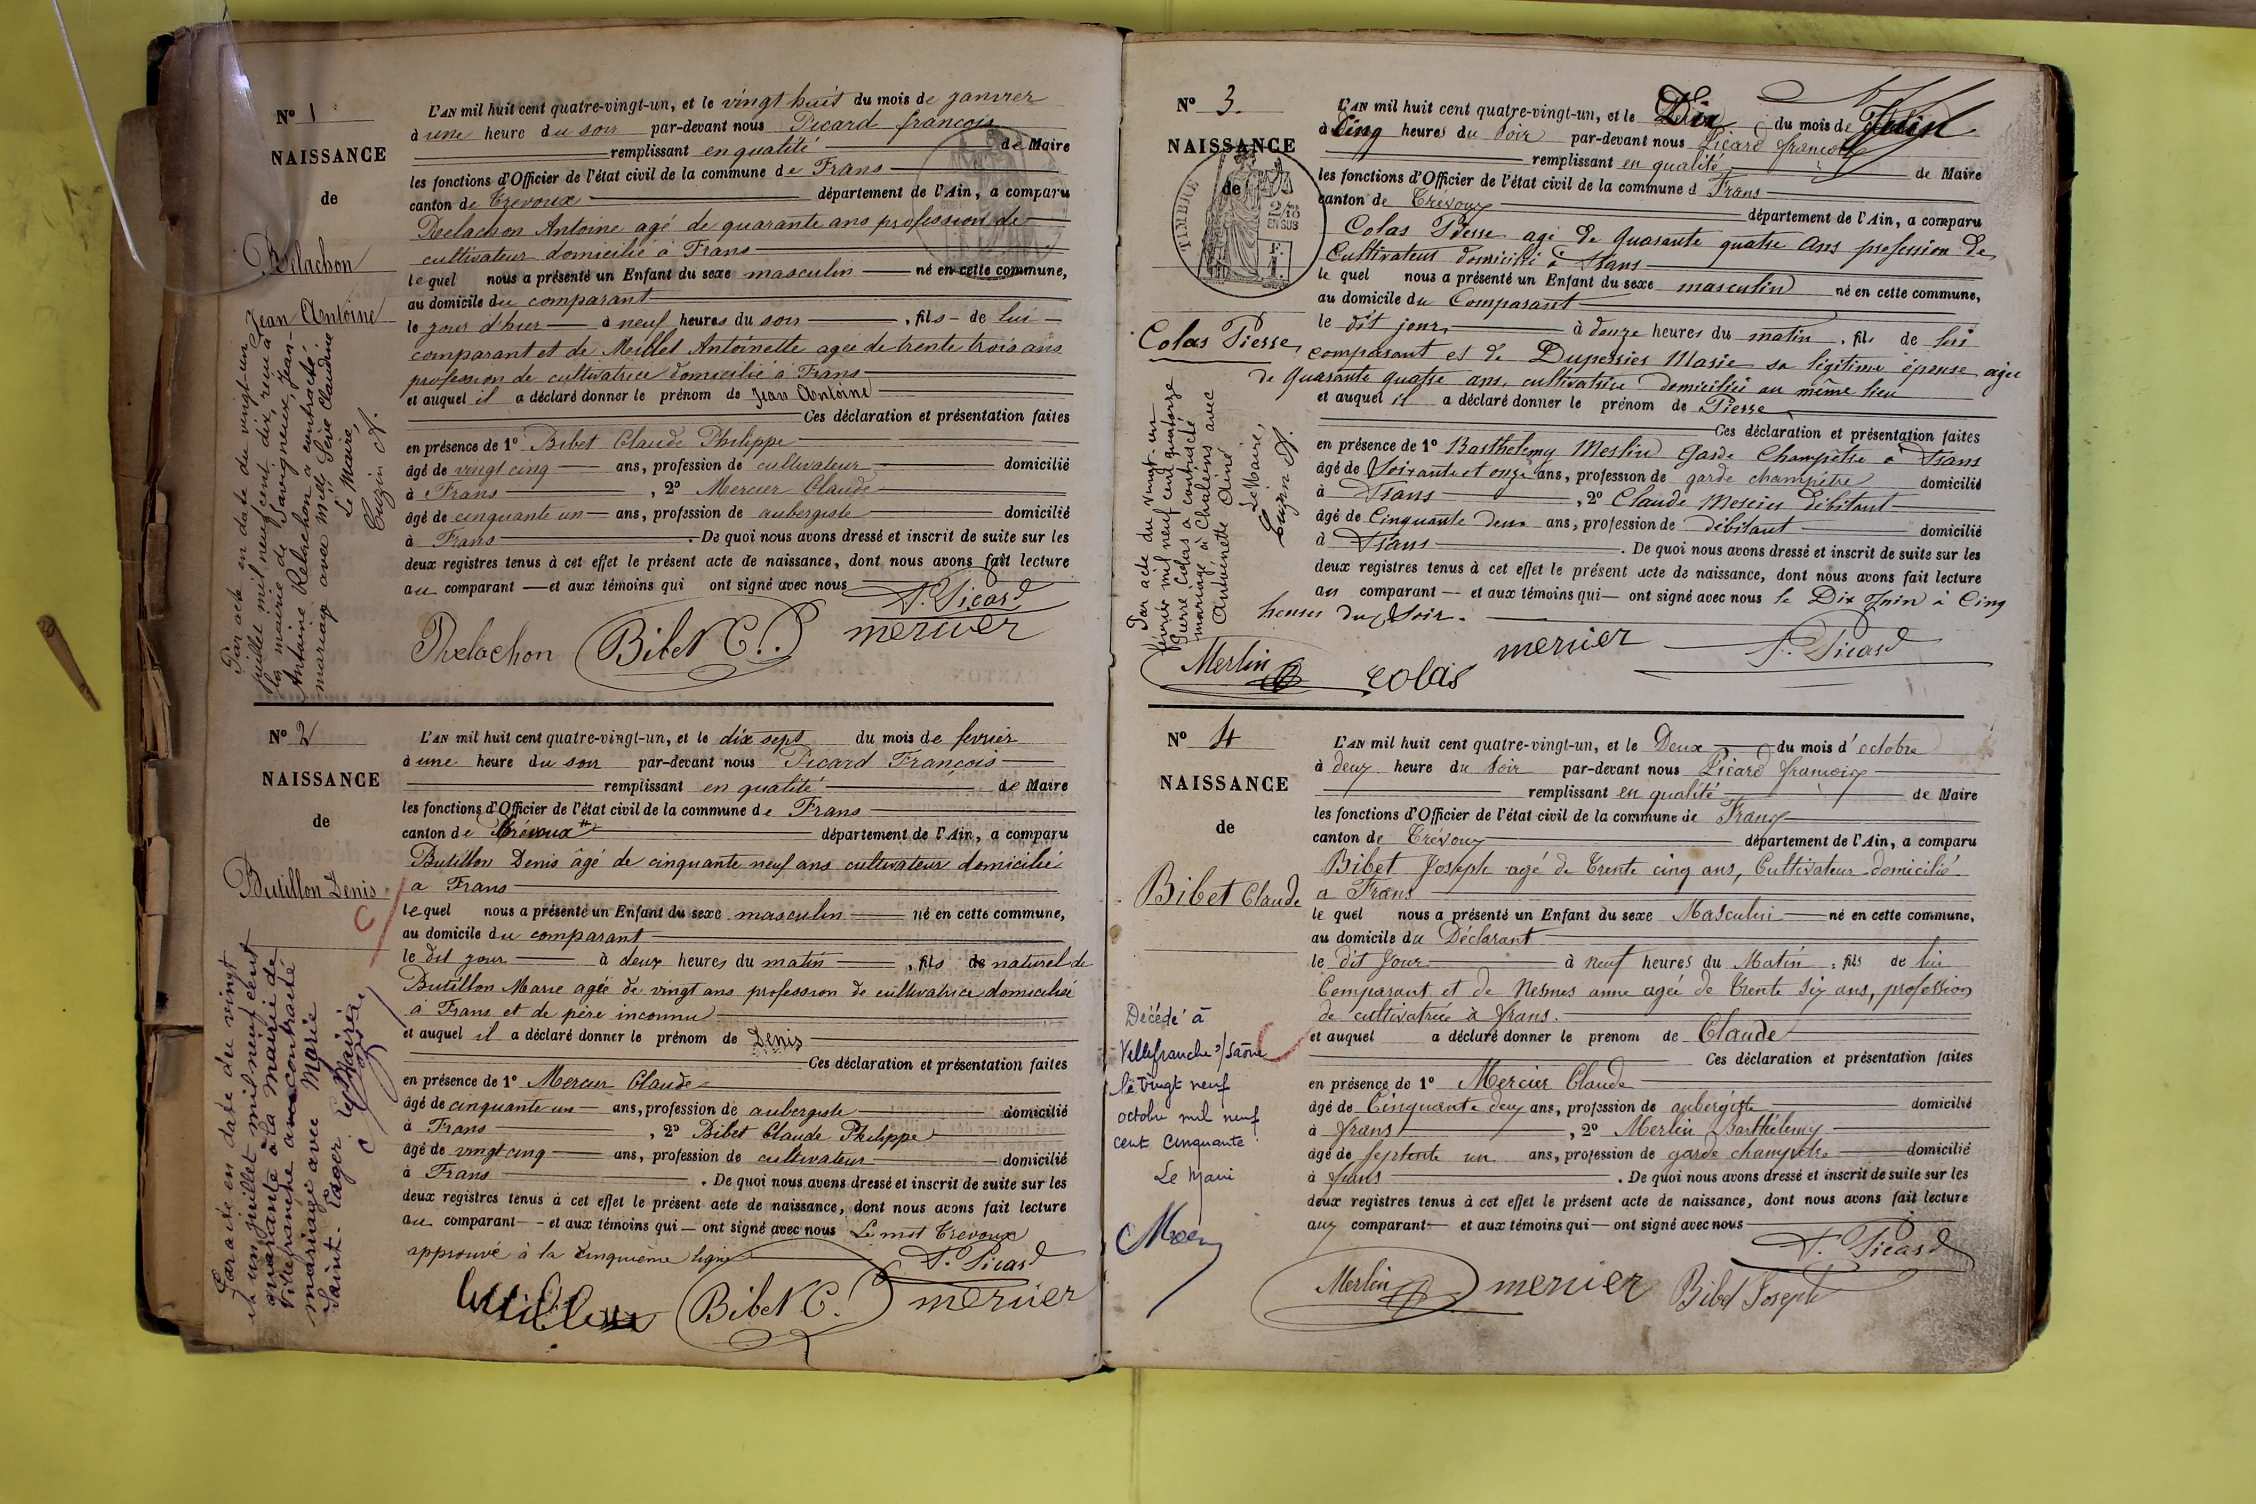 N° 1
NAISSANCE
de
Relachon
Jean Antoine
Par acte en date du vingt-un
juillet mil neuf cent dix, reçu à
la mairie de Savigneux, Jean-
Antoine Relachon a contracté
mariage avec Mlle Sève Claudine
Le Maire,
Cuzin A.
L'AN mil huit cent quatre-vingt-un, et le vingt huit du mois de janvier
à une heure du soir par-devant nous Picard françois
remplissant en qualité de Maire
les fonctions d'Officier de l'état civil de la commune de Frans
canton de Trévoux département de l'Ain, a comparu
Relachon Antoine agé de quarante ans profession de
cultivateur domicilié à Frans
le quel nous a présenté un Enfant du sexe masculin né en cette commune,
au domicile du comparant
le jour d'hier à neuf heures du soir , fils de lui
comparant et de Meillet Antoinette agée de trente trois ans
profession de cultivatrice domicilié à Frans
et auquel il a déclaré donner le prénom de Jean Antoine
Ces déclaration et présentation faites
en présence de 1° Bibet Claude Philippe
âgé de vingt cinq ans, profession de cultivateur domicilié
à Frans , 2° Mercier Claude
âgé de cinquante un ans, profession de aubergiste domicilié
à Frans . De quoi nous avons dressé et inscrit de suite sur les
deux registres tenus à cet effet le présent acte de naissance, dont nous avons fait lecture
au comparant et aux témoins qui ont signé avec nous
F. Picard
Relachon Bibet C. P. mercier
N° 2
NAISSANCE
de
Butillon Denis
C
Par acte en date du vingt
et un juillet mil neuf cent
quarante à la mairie de
Villefranche a contracté
mariage avec Marie
Saint-Lager
le Maire
L'AN mil huit cent quatre-vingt-un, et le dix sept du mois de fevrier
à une heure du soir par-devant nous Picard François
remplissant en qualité de Maire
les fonctions d'Officier de l'état civil de la commune de Frans
canton de Trévoux département de l'Ain, a comparu
Butillon Denis âgé de cinquante neuf ans cultivateur domicilié
a Frans
le quel nous a présenté un Enfant du sexe masculin né en cette commune,
au domicile du comparant
le dit jour à deux heures du matin , fils de naturel de
Butillon Marie agée de vingt ans profession de cultivatrice domicilié
à Frans et de père inconnu
et auquel il a déclaré donner le prénom de Denis
Ces déclaration et présentation faites
en présence de 1° Mercier Claude
âgé de cinquante un ans, profession de aubergiste domicilié
à Frans , 2° Bibet Claude Philippe
âgé de vingt cinq ans, profession de cultivateur domicilié
à Frans . De quoi nous avons dressé et inscrit de suite sur les
deux registres tenus à cet effet le présent acte de naissance, dont nous avons fait lecture
au comparant et aux témoins qui ont signé avec nous Le mot Trevoux
approuvé à la cinquième ligne F. Picard
Butillon Bibet C. mercier
N° 3.
NAISSANCE
de
TIMBRE
2/10
EN SUS
Colas Pierre
Par acte du vingt-un
février mil neuf cent quatorze
Pierre Colas a contracté
mariage à Chaleins avec
Antoinette Aimé
Le Maire,
Cuzin A.
L'AN mil huit cent quatre-vingt-un, et le Dix du mois de Juin
à Cinq heures du Soir par-devant nous Picard françois
remplissant en qualité de Maire
les fonctions d'Officier de l'état civil de la commune d Frans
canton de Trévoux département de l'Ain, a comparu
Colas Pierre agé de Quarante quatre ans profession de
Cultivateur domicilié à Frans
le quel nous a présenté un Enfant du sexe masculin né en cette commune,
au domicile du Comparant
le dit jour à douze heures du matin , fils de lui
comparant et de Duperrier Marie sa légitime épouse agée
de Quarante quatre ans, cultivatrice domiciliée au même lieu
et auquel il a déclaré donner le prénom de Pierre
Ces déclaration et présentation faites
en présence de 1° Barthélemy Merlin Garde Champêtre à Frans
âgé de Soixante et onze ans, profession de garde champêtre domicilié
à Frans , 2° Claude Mercier débitant
âgé de Cinquante deux ans, profession de débitant domicilié
à Frans . De quoi nous avons dressé et inscrit de suite sur les
deux registres tenus à cet effet le présent acte de naissance, dont nous avons fait lecture
au comparant et aux témoins qui ont signé avec nous le Dix Juin à Cinq
heures du Soir.
Merlin B colas mercier F. Picard
N° 4
NAISSANCE
de
Bibet Claude
Décédé à
Villefranche s/Saône
le vingt neuf
octobre mil neuf
cent cinquante.
Le Maire
L'AN mil huit cent quatre-vingt-un, et le Deux du mois d'octobre
à deux heure du Soir par-devant nous Picard françois
remplissant en qualité de Maire
les fonctions d'Officier de l'état civil de la commune de Frans
canton de Trévoux département de l'Ain, a comparu
Bibet Joseph agé de Trente cinq ans, Cultivateur domicilié
a Frans
le quel nous a présenté un Enfant du sexe Masculin né en cette commune,
au domicile du Déclarant
le dit Jour à neuf heures du Matin , fils de lui
Comparant et de Nesmes anne agée de Trente Six ans, profession
de cultivatrice à frans.
et auquel a déclaré donner le prénom de Claude
Ces déclaration et présentation faites
en présence de 1° Mercier Claude
âgé de Cinquante deux ans, profession de aubergiste domicilié
à frans , 2° Merlin Barthélemy
âgé de septente un ans, profession de garde champêtre domicilié
à frans . De quoi nous avons dressé et inscrit de suite sur les
deux registres tenus à cet effet le présent acte de naissance, dont nous avons fait lecture
aux comparant et aux témoins qui ont signé avec nous
F. Picard
Merlin B mercier Bibet Joseph